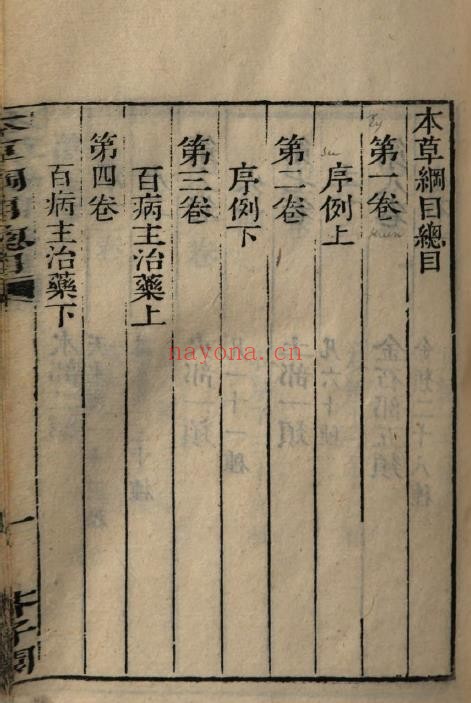 本草綱目總目
第一卷
序例上
第二卷
序例下
第三卷
百病主治藥上
第四卷
百病主治藥下
本草綱目總目
一
芥子園
hayona.cn